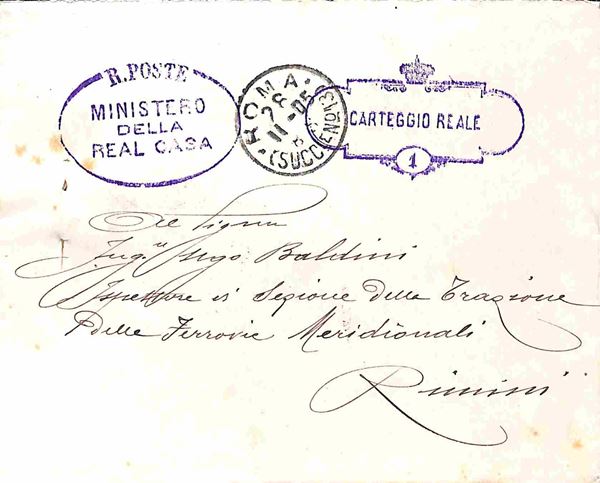 R. POSTE
MINISTERO
DELLA
REAL CASA
ROMA
28
11-05
(SUCC
CARTEGGIO REALE
1
Al Signor
Ing. Ugo Baldini
Ispettore di Sezione della Trazione
delle Ferrovie Meridionali
Rimini